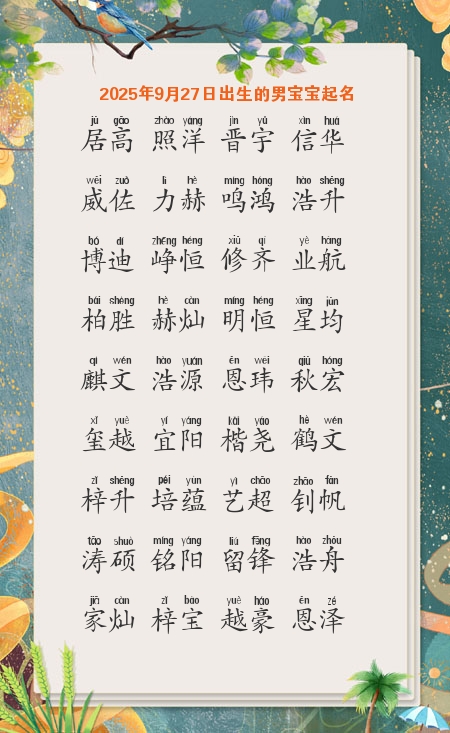 2025年9月27日出生的男宝宝起名
jū gāo zhào yáng jìn yǔ xìn huá
居高 照洋 晋宇 信华
wēi zuǒ lì hè míng hóng hào shēng
威佐 力赫 鸣鸿 浩升
bó dí zhēng héng xiū qí yè háng
博迪 峥恒 修齐 业航
bǎi shèng hè càn míng héng xīng jūn
柏胜 赫灿 明恒 星均
qí wén hào yuán ēn wěi qiū hóng
麒文 浩源 恩玮 秋宏
xǐ yuè yí yáng kǎi yáo hè wén
玺越 宜阳 楷尧 鹤文
zǐ shēng péi yùn yì chāo zhāo fān
梓升 培蕴 艺超 钊帆
tāo shuò míng yáng liú fēng hào zhōu
涛硕 铭阳 留锋 浩舟
jiā càn zǐ bǎo yuè háo ēn zé
家灿 梓宝 越豪 恩泽